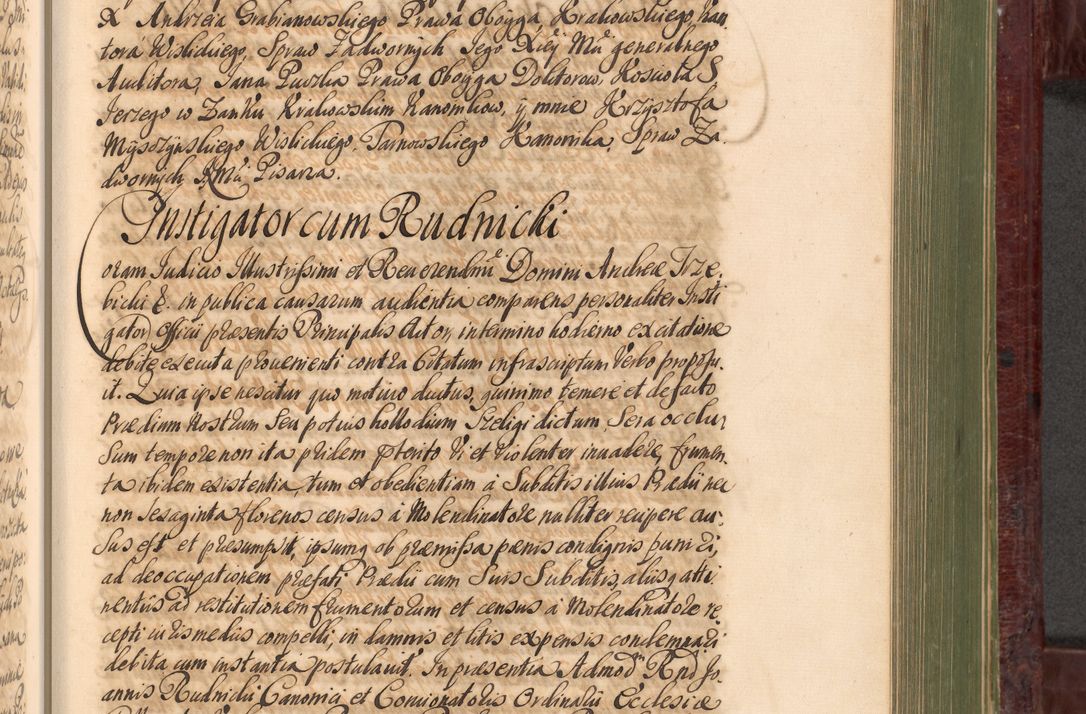 X Andrzeia Grabianowskiego Prawa Oboyga, Krakowskiego, Kan
tora Wislickiego, Spraw Zadwornych Jego Xcey Mci generalnego
Auditora, Jana Puczka Prawa Oboyga Doktorow, Kosciola S
Jerzego w Zamku Krakowskim Kanonikow, y mnie Krzysztofa
Mysoszynskiego Wislickiego, Tarnowskiego Kanonika, Spraw Za
dwornych XMci Pisarza.
Instigator cum Rudnicki
Coram Judicio Illustrissimi et Reuerendmi Domini Andreæ Trze,
bicki &. in publica causarum audientia comparens personaliter Insti
gator Officii præsentis Principalis Actor, in termino hodierno ex citatione
debite executa prouenienti contra Citatum infrascriptum Verbo proposu,
it. Quia ipse nescitur quo motiuo ductus, quinimo temere et de facto
Prædium Nostrum seu potius hollodium Szeligi dictum, Sera occlu,
sum tempore non ita pridem pterito Vi et violenter inuadere, frumen,
ta ibidem existentia, tum et obedientiam à Subditis illius Prædii nec
non sexaginta florenos census à Molendinatore nulliter recipere au,
sus est et præsumpsit, ipsumq ob præmissa pænis condignis puniri,
ad deoccupationem præfati Prædii cum Suis Subditis, aliisq atti
nentiis ad restitutionem frumentorum et census à Molendinatore re,
cepti iuris mediis compelli, in damnis et litis expensis condemnari
debita cum instantia postulauit. In præsentia Admod. Rndi Jo,
annis Rudnicki Canonici et Concionatoris Ordinarii Ecclesiæ